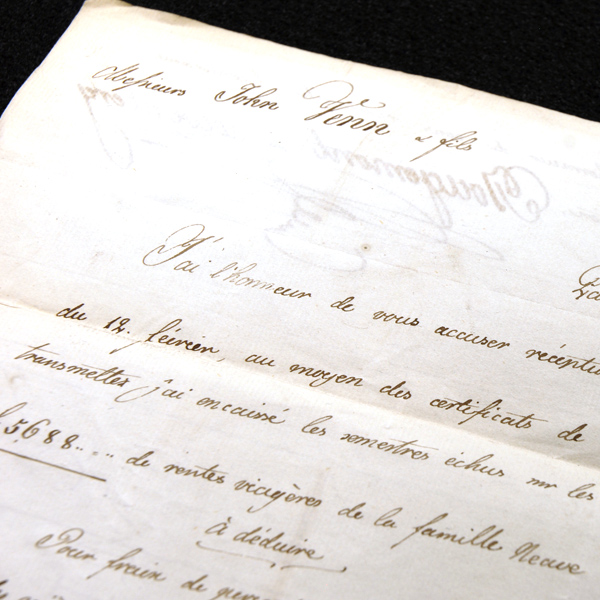 Messieurs John Venn & fils
J'ai l'honneur de vous accuser récéptio
du 12. février, au moyen des certificats de
transmettes j'ai encaissé les semestres échus sur les
5688.... de rentes viagères de la famille Neave
à déduire
Pour fraix de